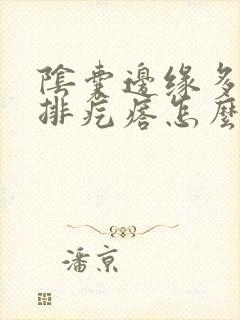 陰囊邊緣多
排疙瘩怎麼
潘京